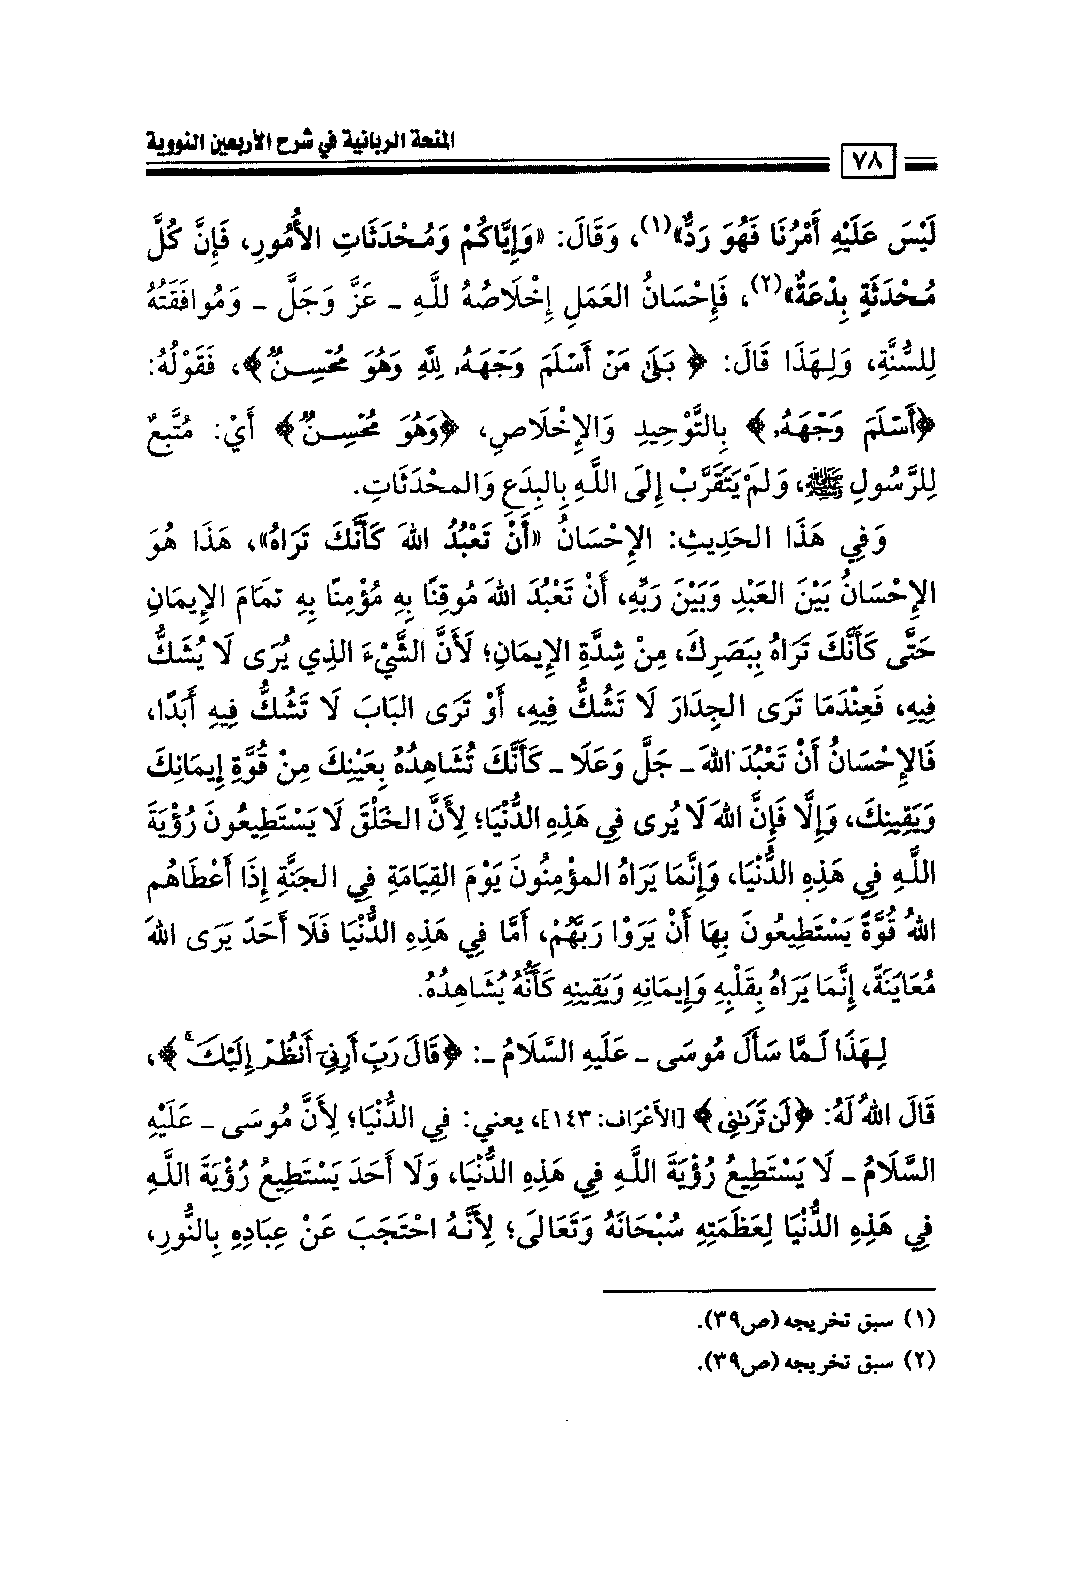 المنحة الربانية في شرح الأربعين النووية
٧٨
لَيْسَ عَلَيْهِ أَمْرُنَا فَهُوَ رَدٌّ»(١)، وَقَالَ: «وَإِيَّاكُمْ وَمُحْدَثَاتِ الأُمُورِ، فَإِنَّ كُلَّ
مُحْدَثَةٍ بِدْعَةٌ»(٢)، فَإِحْسَانُ العَمَلِ إِخْلَاصُهُ للَّهِ - عَزَّ وَجَلَّ - وَمُوافَقَتُهُ
لِلسُّنَّةِ، وَلِهَذَا قَالَ: ﴿ بَلَىٰ مَنْ أَسْلَمَ وَجْهَهُۥ لِلَّهِ وَهُوَ مُحْسِنٌ ﴾، فَقَوْلُهُ:
﴿أَسْلَمَ وَجْهَهُۥ ﴾ بِالتَّوْحِيدِ وَالإِخْلَاصِ، ﴿وَهُوَ مُحْسِنٌ ﴾ أَيْ: مُتَّبِعٌ
لِلرَّسُولِ ﷺ، وَلَمْ يَتَقَرَّبْ إِلَى اللَّهِ بِالبِدَعِ وَالمحْدَثَاتِ.
وَفِي هَذَا الحَدِيثِ: الإِحْسَانُ «أَنْ تَعْبُدُ اللهَ كَأَنَّكَ تَرَاهُ»، هَذَا هُوَ
الإِحْسَانُ بَيْنَ العَبْدِ وَبَيْنَ رَبِّهِ، أَنْ تَعْبُدَ اللهَ مُوقِنًا بِهِ مُؤْمِنًا بِهِ تمَامَ الإِيمَانِ
حَتَّى كَأَنَّكَ تَرَاهُ بِبَصَرِكَ، مِنْ شِدَّةِ الإِيمَانِ؛ لَأَنَّ الشَّيْءَ الذِي يُرَى لَا يُشَكُّ
فِيهِ، فَعِنْدَمَا تَرَى الجِدَارَ لَا تَشُكُّ فِيهِ، أَوْ تَرَى البَابَ لَا تَشُكُّ فِيهِ أَبَدًا،
فَالإِحْسَانُ أَنْ تَعْبُدَ اللهَ - جَلَّ وَعَلَا - كَأَنَّكَ تُشَاهِدُهُ بِعَيْنِكَ مِنْ قُوَّةِ إِيمَانِكَ
وَيَقِينِكَ، وَإِلَّا فَإِنَّ اللهَ لَا يُرى فِي هَذِهِ الدُّنْيَا؛ لِأَنَّ الخَلْقَ لَا يَسْتَطِيعُونَ رُؤْيَةَ
اللَّهِ فِي هَذِهِ الدُّنْيَا، وَإِنَّمَا يَرَاهُ المؤْمِنُونَ يَوْمَ القِيَامَةِ فِي الجَنَّةِ إِذَا أَعْطَاهُم
اللهُ قُوَّةً يَسْتَطِيعُونَ بِهَا أَنْ يَرَوْا رَبَّهُمْ، أَمَّا فِي هَذِهِ الدُّنْيَا فَلَا أَحَدَ يَرَى اللهَ
مُعَايَنَةً، إِنَّمَا يَرَاهُ بِقَلْبِهِ وَإِيمَانِهِ وَيَقِينِهِ كَأَنَّهُ يُشَاهِدُهُ.
لِهَذَا لَمَّا سَأَلَ مُوسَى - عَلَيهِ السَّلَامُ -: ﴿قَالَ رَبِّ أَرِنِيٓ أَنظُرْ إِلَيْكَ ۚ ﴾،
قَالَ اللهُ لَهُ: ﴿لَن تَرَىٰنِي ﴾ [الأَعْرَاف: ١٤٣]، يعني: فِي الدُّنْيَا؛ لِأَنَّ مُوسَى - عَلَيْهِ
السَّلَامُ - لَا يَسْتَطِيعُ رُؤْيَةَ اللَّهِ فِي هَذِهِ الدُّنْيَا، وَلَا أَحَدَ يَسْتَطِيعُ رُؤْيَةَ اللَّهِ
فِي هَذِهِ الدُّنْيَا لِعَظَمَتِهِ سُبْحَانَهُ وَتَعَالَى؛ لِأَنَّهُ احْتَجَبَ عَنْ عِبَادِهِ بِالنُّورِ،
(١) سبق تخريجه (ص٣٩).
(٢) سبق تخريجه (ص٣٩).